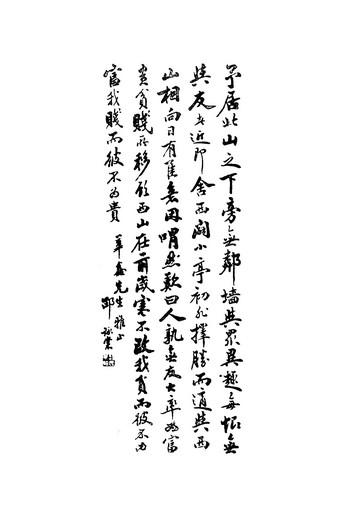 予居北山之下旁無鄰墻與眾異趣每恨無
與友者近即舍西闢小亭初非擇勝而適與西
山相向日有喟然歎曰人孰無友大率為富
貴貧賤所移顧西山在前歲寒不改我貧而彼不為
富我賤而彼不為貴
先生雅正